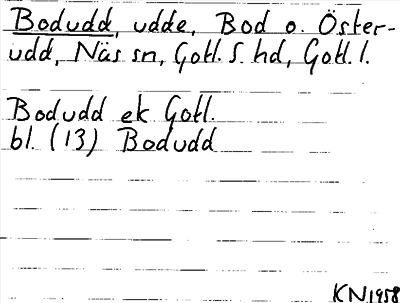 Bodudd, udde, Bod o. Öster-
udd, Näs sn, Gotl. S. hd, Gotl. l.
Bodudd ek Gotl.
bl. (13) Bodudd
KN 1958